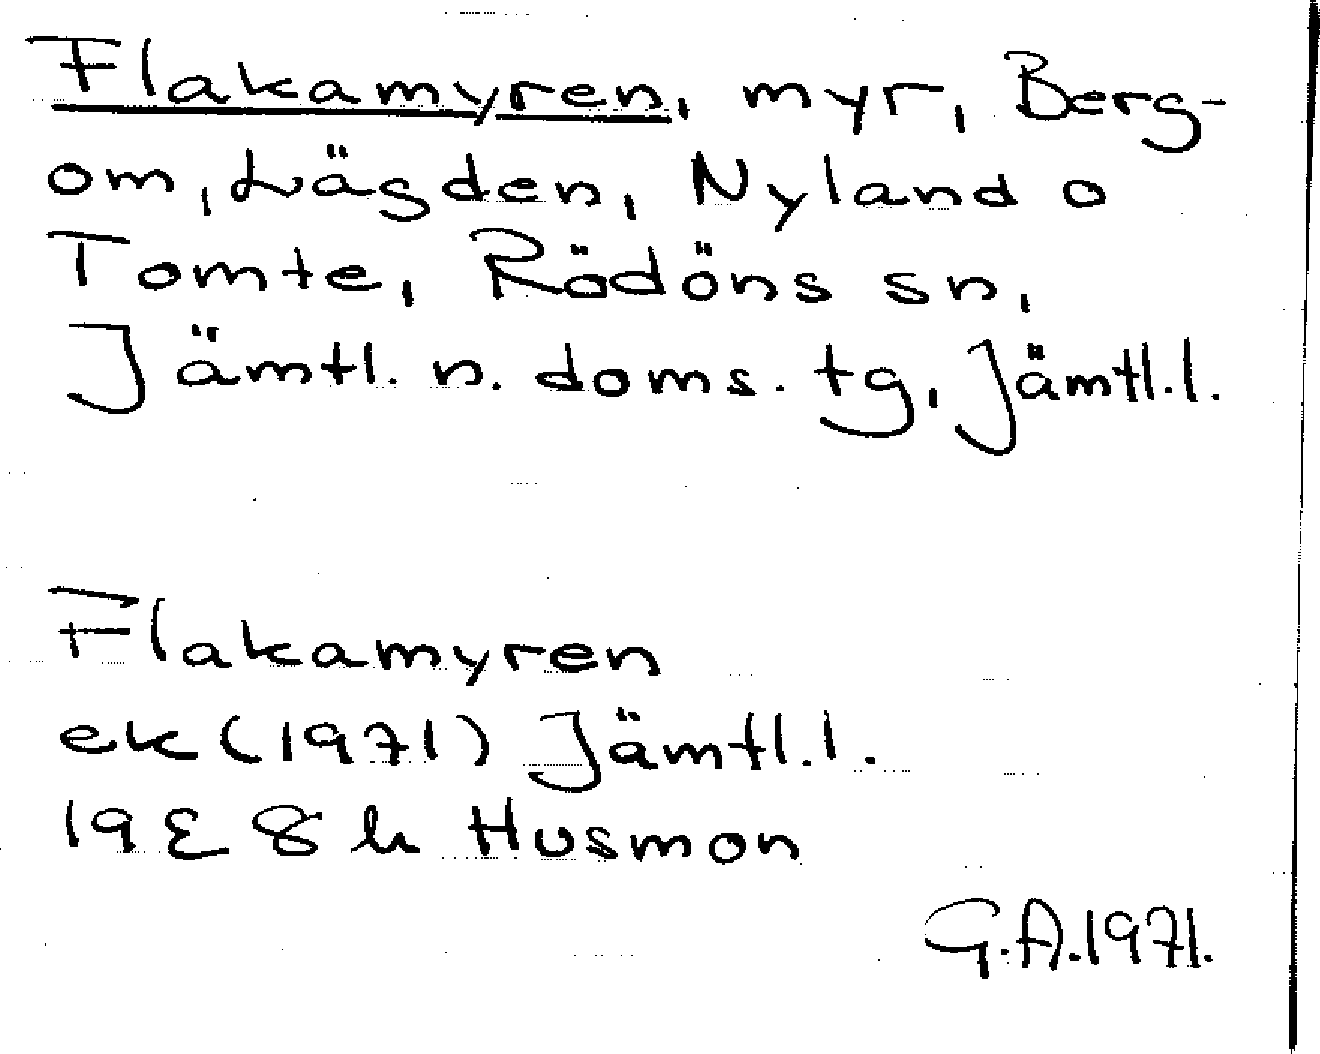 Flakamyren, myr, Berg-
om, Lägden, Nyland o
Tomte, Rödöns sn,
Jämtl. n. doms. tg, Jämtl. l.
Flakamyren
ek (1971) Jämtl. l.
19E 8h Husmon
G.A. 1971.